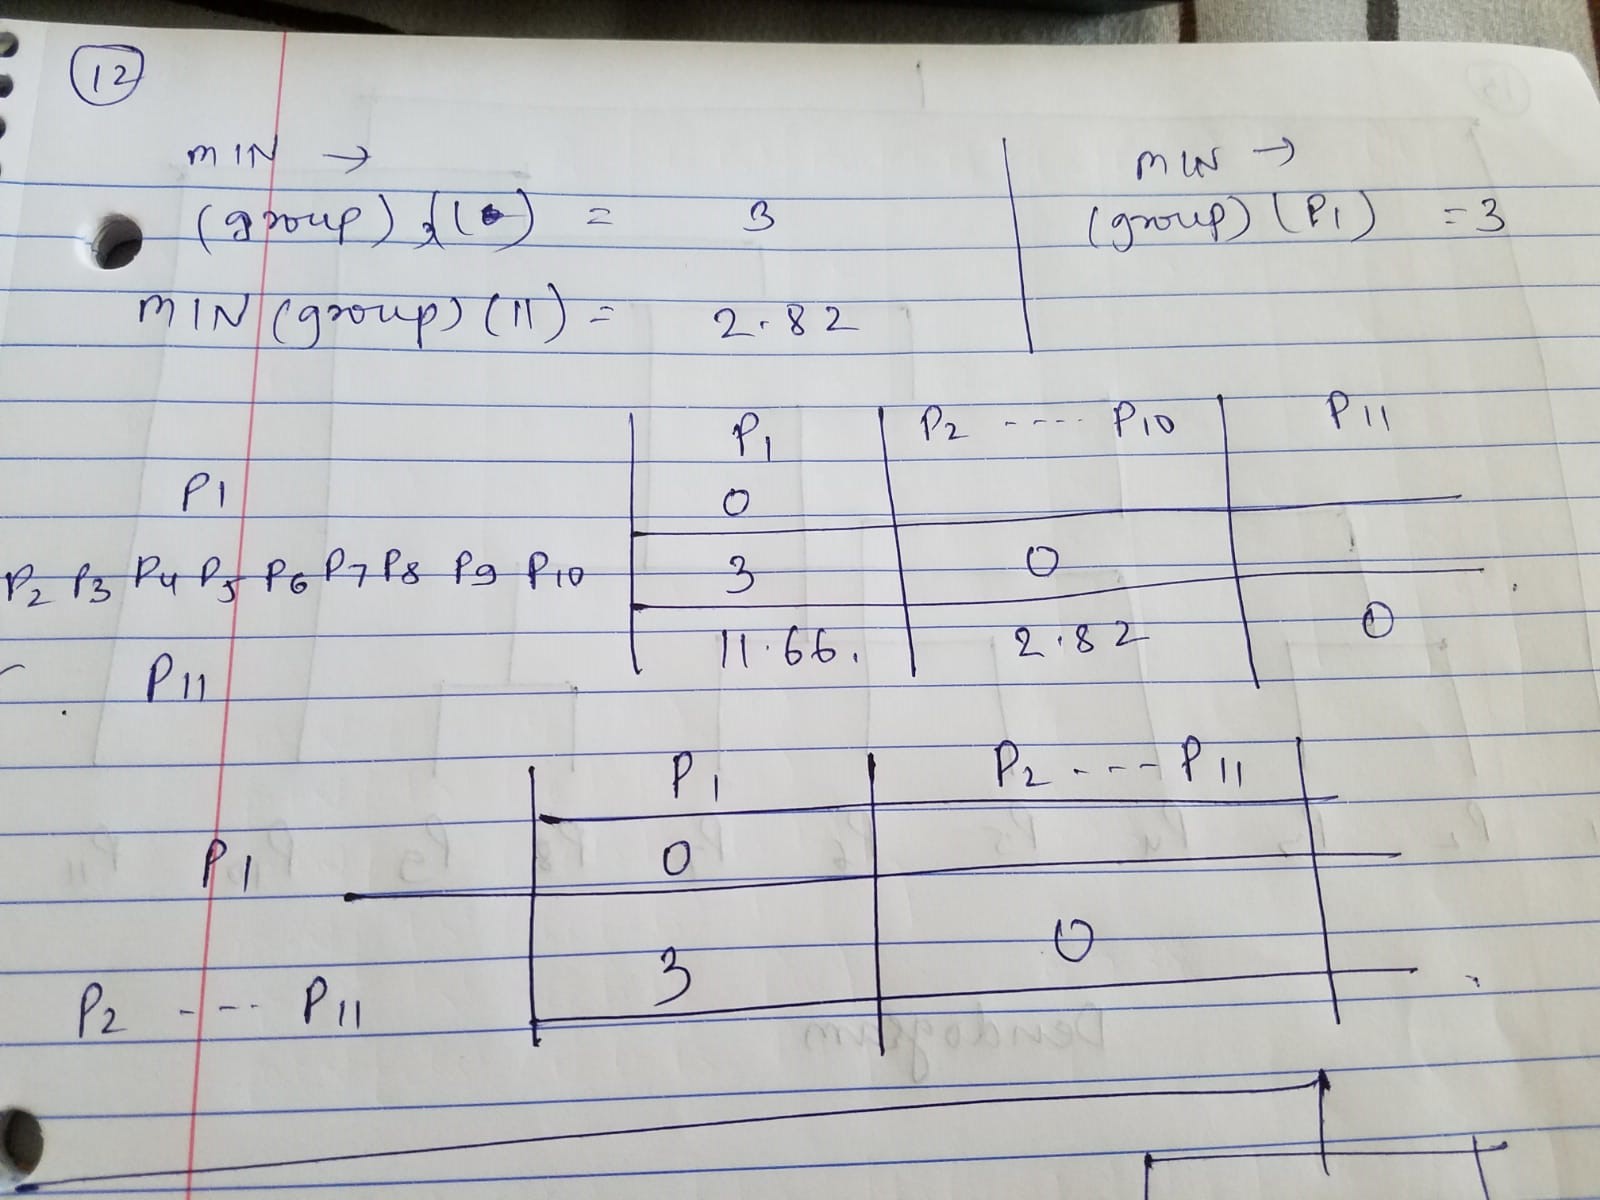 12
MIN → MIN →
(group) = 3 (group) (P1) = 3
MIN (group) (11) = 2.82
P1 P2 ---- P10 P11
P1 0
P2 P3 P4 P5 P6 P7 P8 P9 P10 3 0
P11 11.66. 2.82 0
P1 P2 --- P11
P1 0
P2 ---- P11 3 0